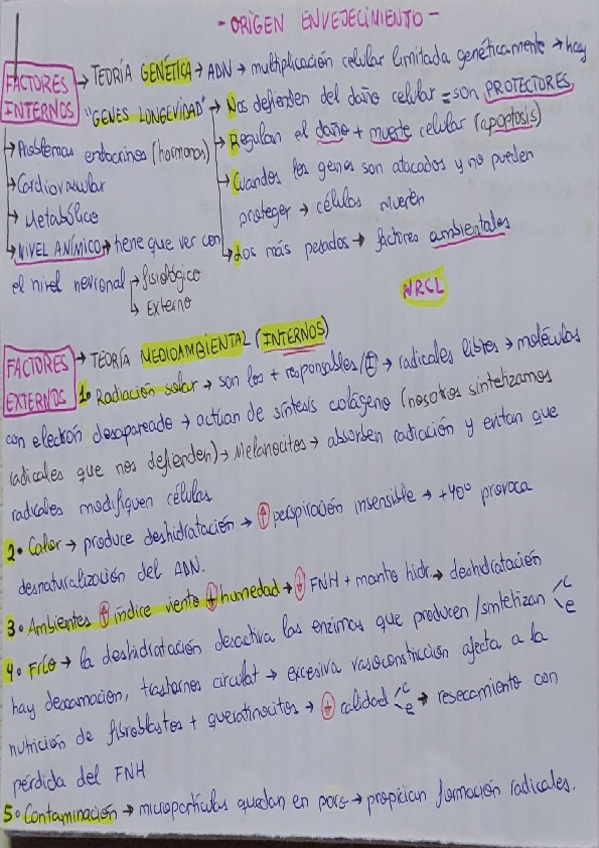 - ORIGEN ENVEJECIMIENTO -
FACTORES INTERNOS → TEORÍA GENÉTICA → ADN → multiplicación celular limitada genéticamente → hay
"GENES LONGEVIDAD" → Nos defienden del daño celular = son PROTECTORES
→ Regulan el daño + muerte celular (apoptosis)
→ Cuandos los genes son atacados y no pueden
proteger → células mueren
→ Los más pesados → factores ambientales
→ Problemas endocrinos (hormonas)
→ Cardiovascular
→ Metabólico
→ NIVEL ANÍMICO → tiene que ver con
el nivel neuronal → fisiológico
→ Externo
NRCL
FACTORES EXTERNOS → TEORÍA MEDIOAMBIENTAL (INTERNOS)
1• Radiación solar → son los + responsables / → radicales libres → moléculas
con electrón desapareado → actúan de síntesis colágeno (nosotros sintetizamos
radicales que nos defienden) → Melanocitos → absorben radiación y evitan que
radicales modifiquen células
2• Calor → produce deshidratación → ↑ perspiración insensible → +40º provoca
desnaturalización del ADN.
3• Ambientes ↑ índice viento ↓ humedad → ↓ FNH + manto hidr. → deshidratación
4• Frío → la deshidratación desactiva las enzimas que producen / sintetizan < c e
hay descamación, trastornos circulat → excesiva vasoconstricción afecta a la
nutrición de fibroblastos + queratinocitos → ↓ calidad < c e → resecamiento con
pérdida del FNH
5• Contaminación → micropartículas quedan en poros → propician formación radicales.